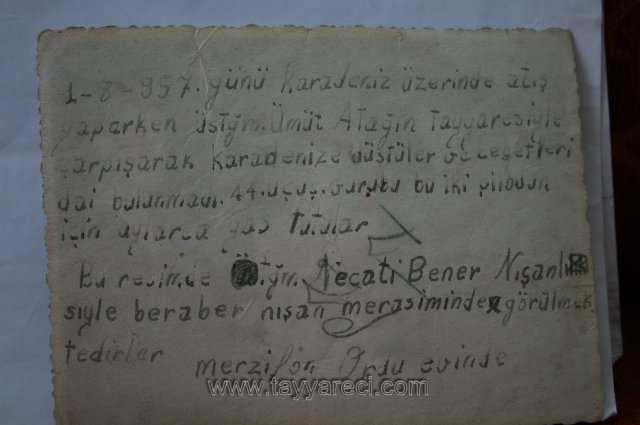 1-8-957. günü Karadeniz üzerinde atış
yaparken üstğm. Ümüt Atağın tayyaresiyle
çarpışarak Karadenize düştüler ve cesetleri
dai bulunmadı. 44. uçuş. Gurubu bu iki pilodun
için aylarca yas tutular
Bu resimde Üstğm. Necati Bener Nışanlı
sıyle beraber nışan merasiminde görülmek
tedirler
merzifon Ordu evinde
www.tayyareci.com